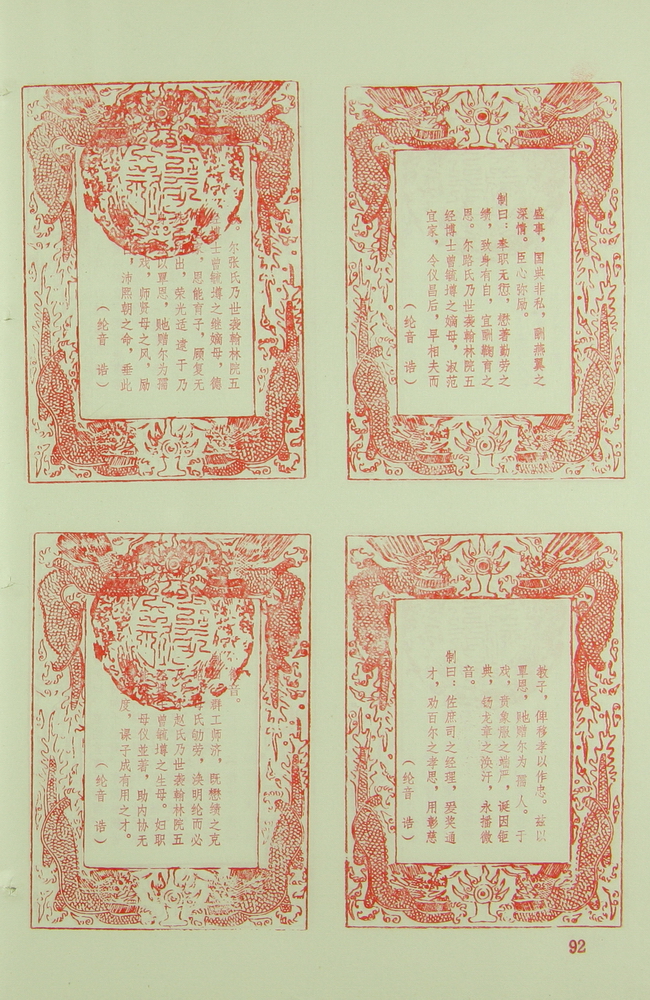 盛事，国典非私，酬燕翼之
深情。臣心弥励。
制曰：奉职无愆，懋著勤劳之
绩，致身有自，宜酬鞠育之
恩。尔路氏乃世袭翰林院五
经博士曾毓墫之嫡母，淑范
宜家，令仪昌后，早相夫而
（纶音 诰）
教子，俾移孝以作忠。兹以
覃恩，貤赠尔为孺人。于
戏，贲象服之端严，诞因钜
典，锡龙章之涣汗，永播徽
音。
制曰：佐庶司之经理，爰奖通
才，劝百尔之孝思，用彰慈
（纶音 诰）
尔张氏乃世袭翰林院五
经博士曾毓墫之继嫡母，德
，恩能育子，顾复无
出，荣光适逮于乃
以覃恩，貤赠尔为孺
戏，师贤母之风，励
，沛熙朝之命，垂此
（纶音 诰）
徽音。
群工师济，既懋绩之克
氏劬劳，涣明纶而必
赵氏乃世袭翰林院五
曾毓墫之生母。妇职
母仪並著，助内协无
度，课子成有用之才。
（纶音 诰）
92